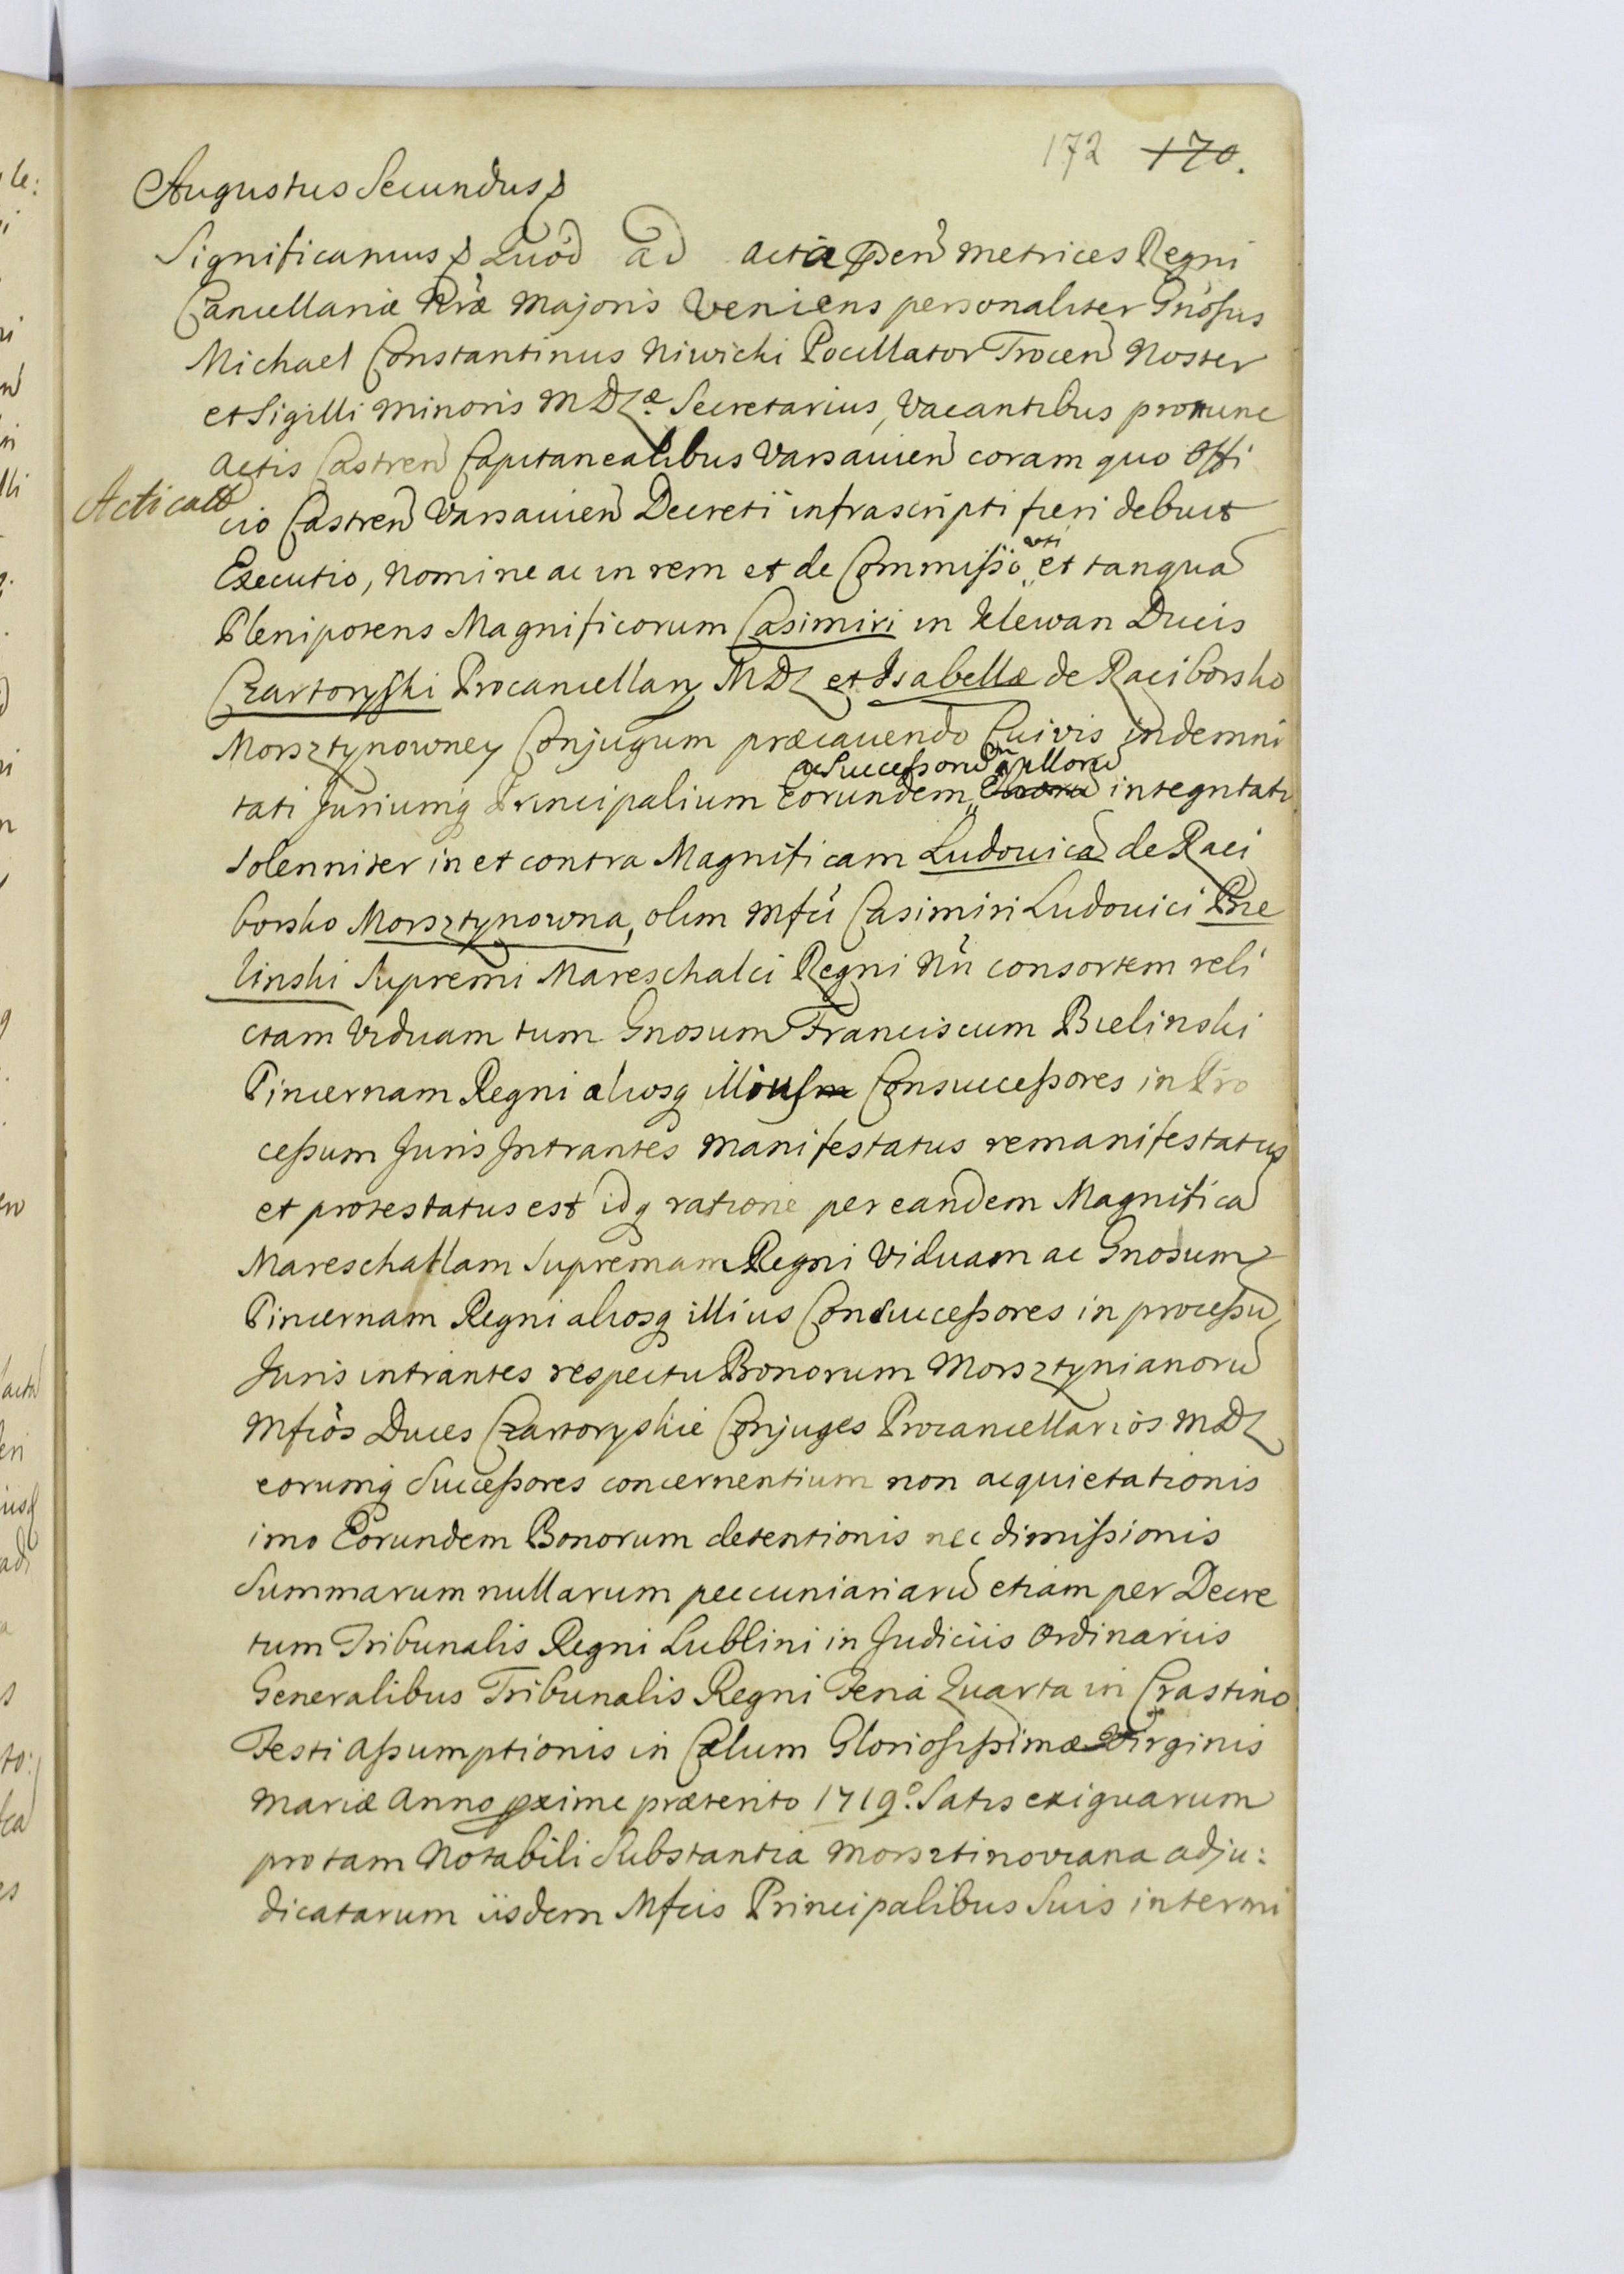 172 170.
Augustus Secundus
Significamus Quod ad acta pñen Metrices Regni
Cancellariæ Nræ Majoris Veniens personaliter Gnosus
Michael Constantinus Niwicki Pocillator Trocen Noster
et Sigilli Minoris MDL Secretarius, Vacantibus pronunc
Actis Castren Capitanealibus Varsavien coram quo Offi
Acticatt
cio Castren Varsavien Decreti infrascripti fieri debuit
Executio, Nomine ac in rem et de Commissö uti et tanqua
Plenipotens Magnificorum Casimiri in Klewan Ducis
Czartoryski Procancellary MDL et Isabellæ de Raciborsko
Morsztynowney Conjugum præcavendo Cuivis indemni
ac Successorũ illorũ
tati Juriumq Principalium Eorundem integritati
Solenniter in et contra Magnificam Ludovicã de Raci
borsko Morsztynowna, olim Mfci Casimiri Ludovici Bie
linski Supremi Mareschalci Regni Nri consortem reli
ctam Viduam tum Gnosum Franciscum Bielinski
Pincernam Regni aliosq illius Consuccessores in Pro
cessum Juris Intrantes Manifestatus remanifestatus
et protestatus est idq ratione per eandem Magnificã
Mareschallam Supremam Regni Viduam ac Gnosum
Pincernam Regni aliosq illius Consuccessores in processũ
Juris intrantes respectu Bonorum Morsztynianorũ
Mfcos Duces Czartoryskie Conjuges Procancellarios MDL
eorumq Successores concernentium non acquietationis
imo Eorundem Bonorum detentionis nec dimissionis
Summarum nullarum peccuniariarũ etiam per Decre
tum Tribunalis Regni Lublini in Judiciis Ordinariis
Generalibus Tribunalis Regni Feria Quarta in Crastino
Festi Assumptionis in Cælum Gloriosissimæ Virginis
Mariæ Anno pxime præterito 1719º. Satis exiguarum
pro tam Notabili Substantia Morsztinoviana adju:
dicatarum iisdem Mfcis Principalibus Suis intermi